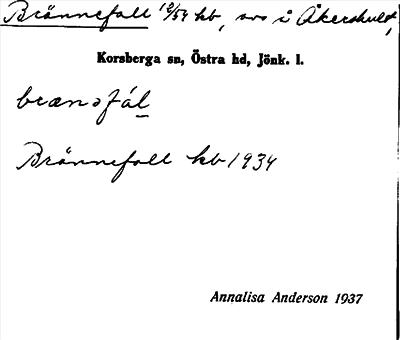 Brännefall 12/54 kb, sos i Åkershult,
Korsberga sn, Östra hd, Jönk. l.
brænəfál
Brännefall kb 1934
Annalisa Anderson 1937